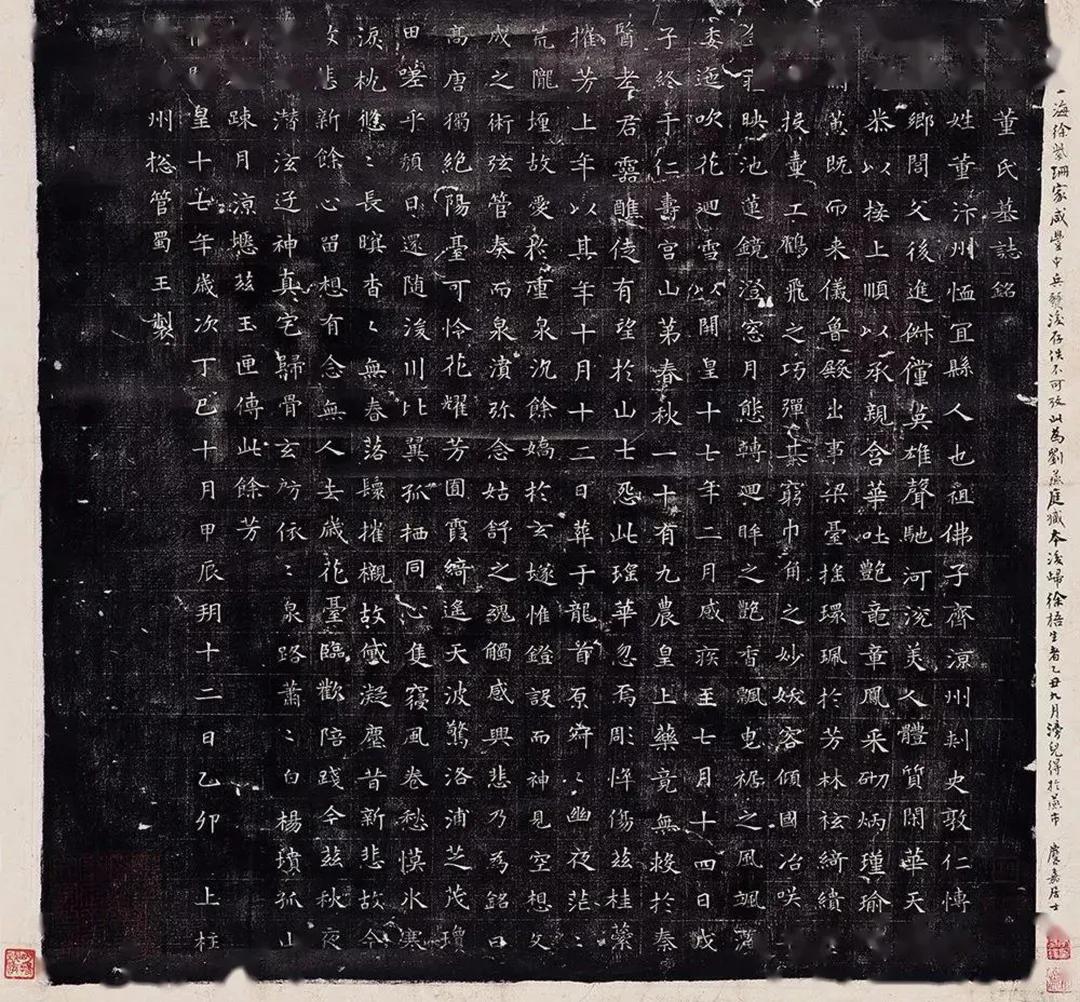 海徐紫珊家咸豐中兵燹後存佚不可攷此為劉燕庭藏本後歸徐梧生者乙丑九月滂兒得於燕市 慶嘉居士
董氏墓誌銘
姓董汴州恤宜縣人也祖佛子齊涼州刾史敦仁博
鄉閭父後進俶儻英雄聲馳河兗美人體質閑華天
恭以接上順以承親含華吐艷竜章鳳采砌炳瑾瑜
既而来儀魯殿出事梁臺搖環珮於芳林袨綺繢
投壷工鶴飛之巧彈棊窮巾角之妙妖容傾國冶咲
映池蓮鏡澄窓月態轉迴眸之艷香飄曳裾之風颯灑
委迤吹花迴雪以開皇十七年二月感疾至七月十四日戊
子終于仁壽宮山第春秋一十有九農皇上藥竟無救於秦
醫老君靈醮徒有望於山士怨此瑤華忽焉彫悴傷茲桂蘂
摧芳上年以其年十月十二日葬于龍首原寂〻幽夜茫〻
荒隴埋故愛於重泉沉餘嬌於玄隧惟鐙設而神見空想文
成之術弦管奏而泉濆弥念姑舒之魂觸感興悲乃為銘曰
高唐獨絕陽臺可怜花耀芳囿霞綺遙天波驚洛浦芝茂瓊
田嗟乎頹日還随浚川比翼孤栖同心隻寢風卷愁慔氷寒
淚枕悠〻長暝杳〻無春落鬟摧櫬故黛凝塵昔新悲故今
故悲新餘心留想有念無人去歲花臺臨歡陪踐今茲秋夜
潛泫迓神真宅歸骨玄房依〻泉路蕭〻白楊墳孤山
踈月涼瘞茲玉匣傳此餘芳
皇十七年歲次丁巳十月甲辰朔十二日乙卯 上柱
州揔管蜀王製